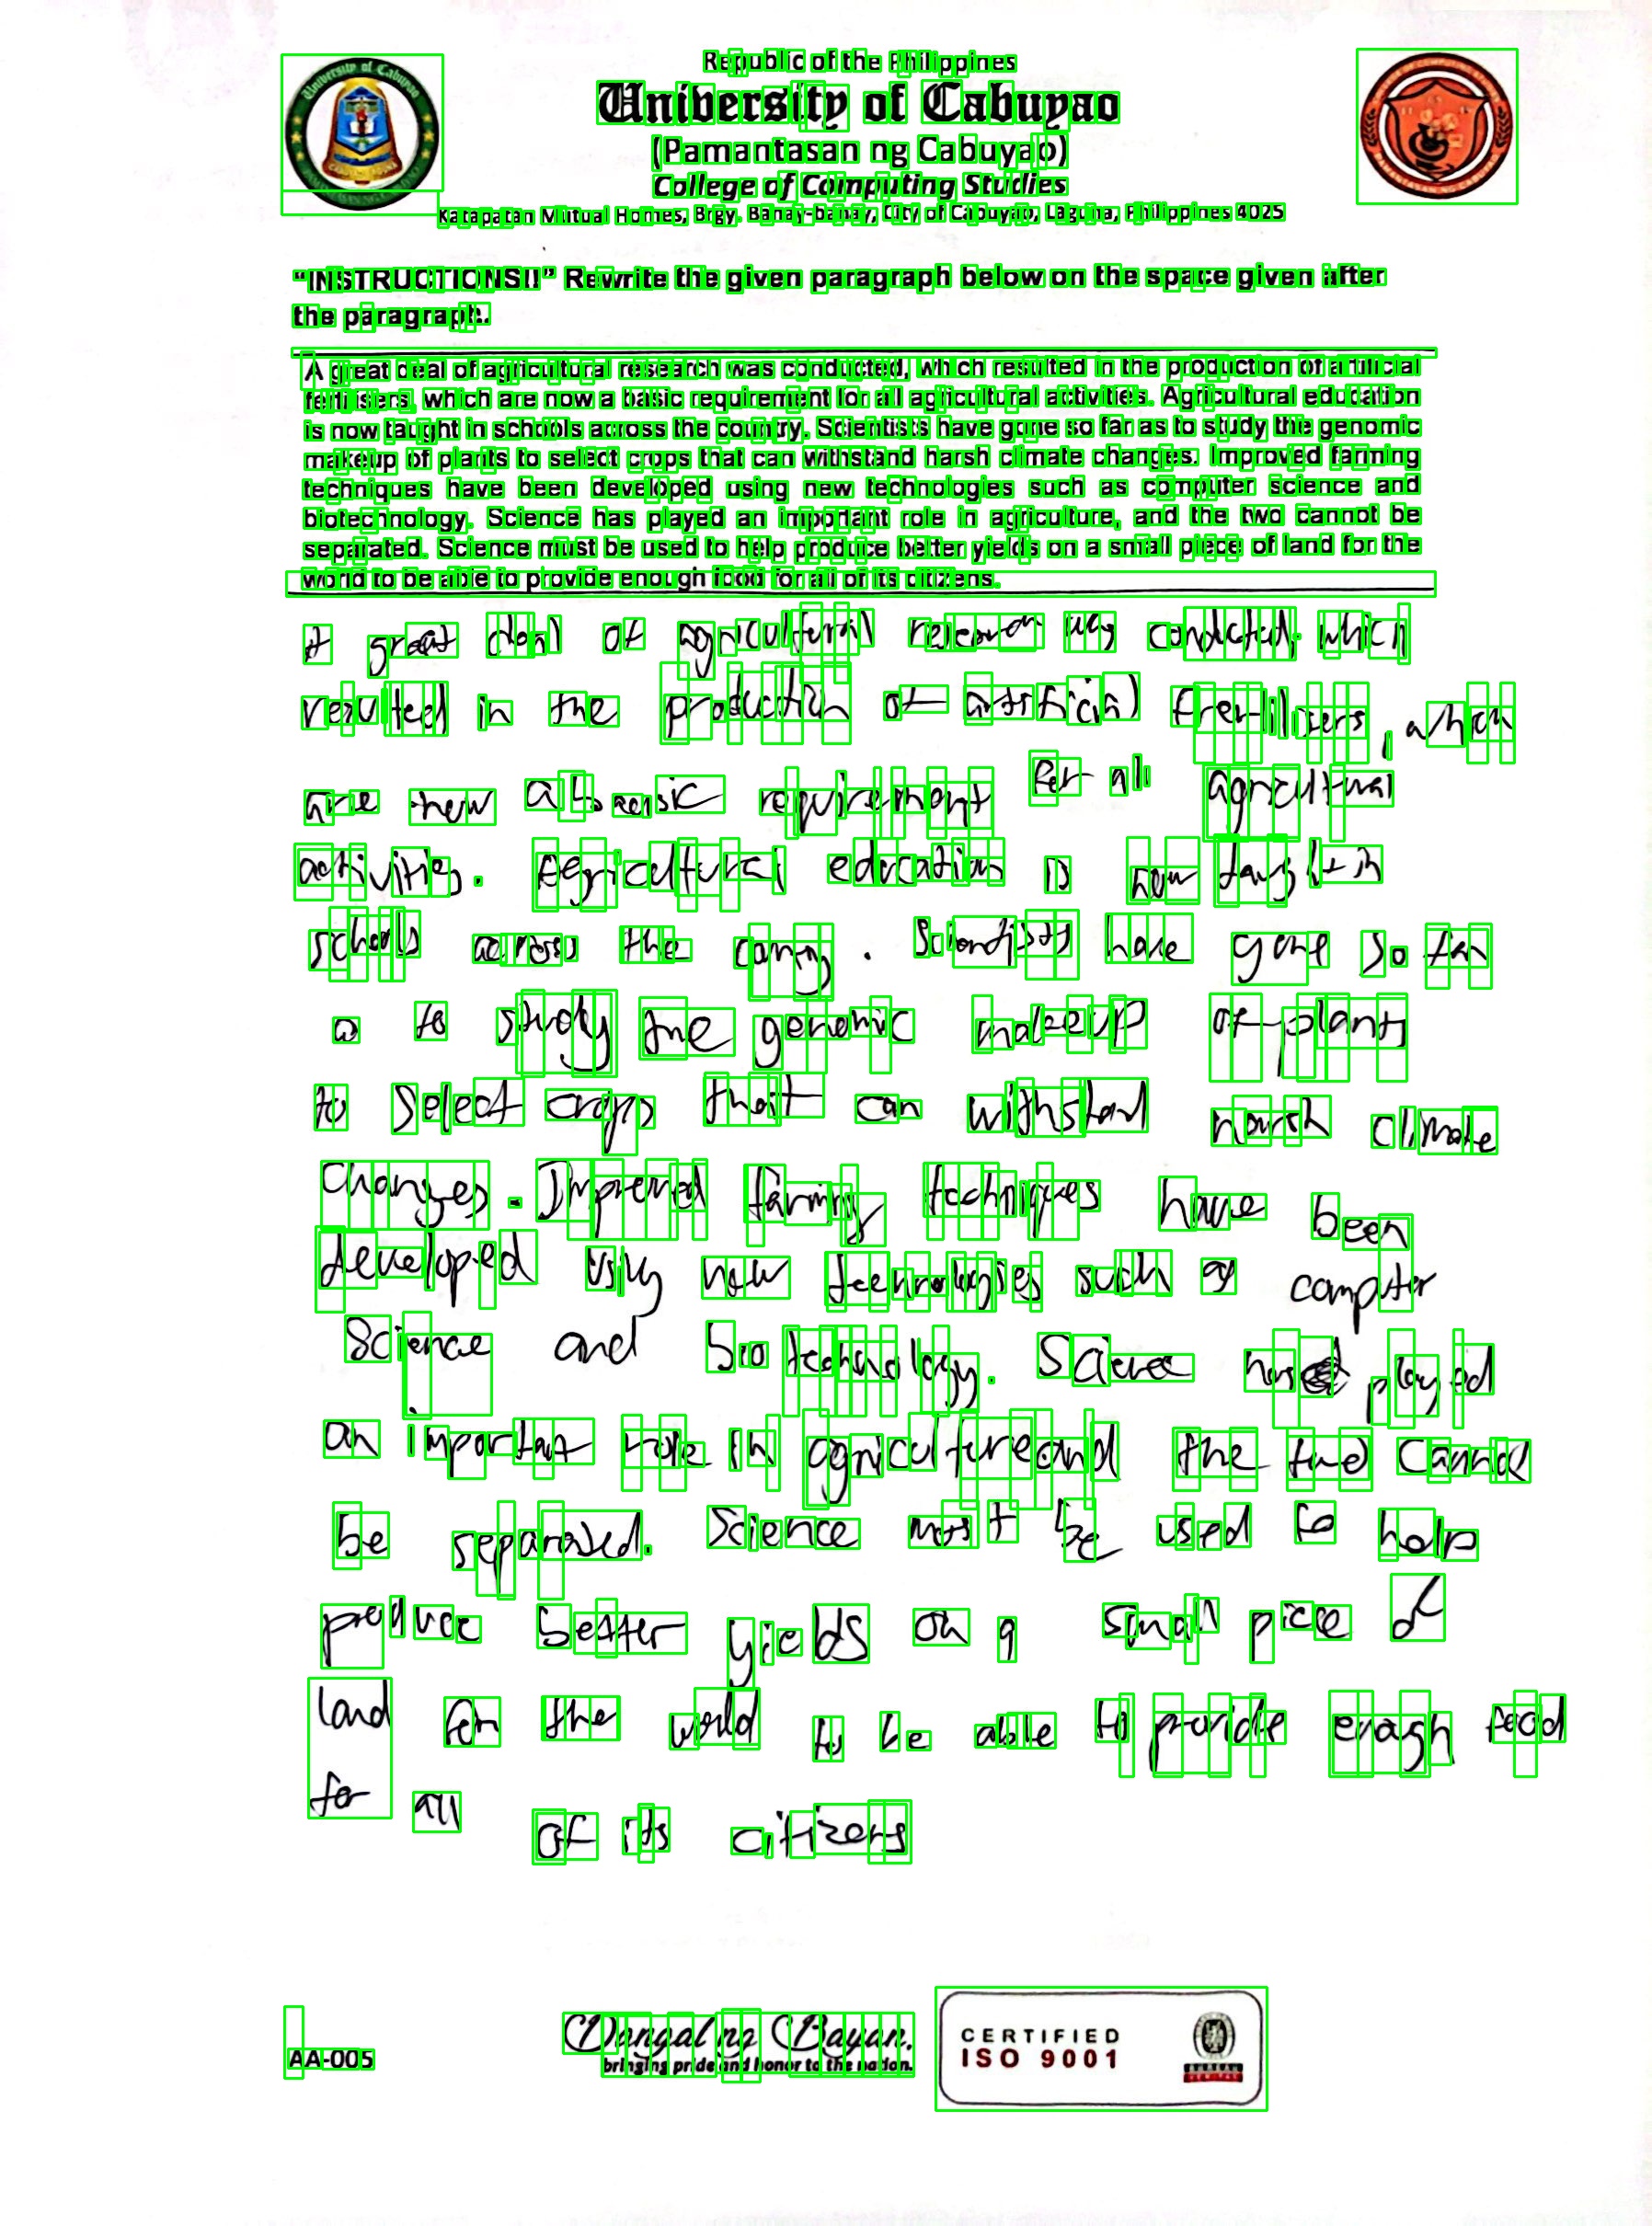 Republic of the Philippines
University of Cabuyao
(Pamantasan ng Cabuyao)
College of Computing Studies
Katapatan Mutual Homes, Brgy. Banay-banay, City of Cabuyao, Laguna, Philippines 4025
“INSTRUCTIONS!!” Rewrite the given paragraph below on the space given after
the paragraph.
A great deal of agricultural research was conducted, which resulted in the production of artificial
fertilisers, which are now a basic requirement for all agricultural activities. Agricultural education
is now taught in schools across the country. Scientists have gone so far as to study the genomic
makeup of plants to select crops that can withstand harsh climate changes. Improved farming
techniques have been developed using new technologies such as computer science and
biotechnology. Science has played an important role in agriculture, and the two cannot be
separated. Science must be used to help produce better yields on a small piece of land for the
world to be able to provide enough food for all of its citizens.
A great deal of agricultural research was conducted, which
resulted in the production of artificial frertilizers, which
are now a basic requirement for all agricultural
activities. Agricultural education is now taught in
schools across the . Scientists have gone so far
as to study the genomic makeup of plants
to select crops that can withstand harsh climate
changes. Improved farming techniques have been
developed using new technologies such as computer
Science and biotechnology. Science has played
an important role in agriculture and the two cannot
be separated. Science must be used to help
produce better yields on a small piece of
land for the world to be able to provide enough food
for all of its citizens
AA-005
Dangal ng Bayan.
bringing pride and honor to the nation.
CERTIFIED
ISO 9001